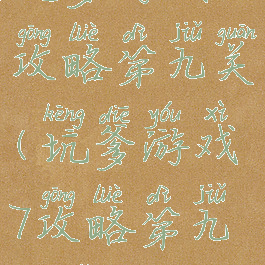 gōng lüè dì jiǔ guān
攻略第九关
kēng diē yóu xì
（坑爹游戏
gōng lüè dì jiǔ
7攻略第九